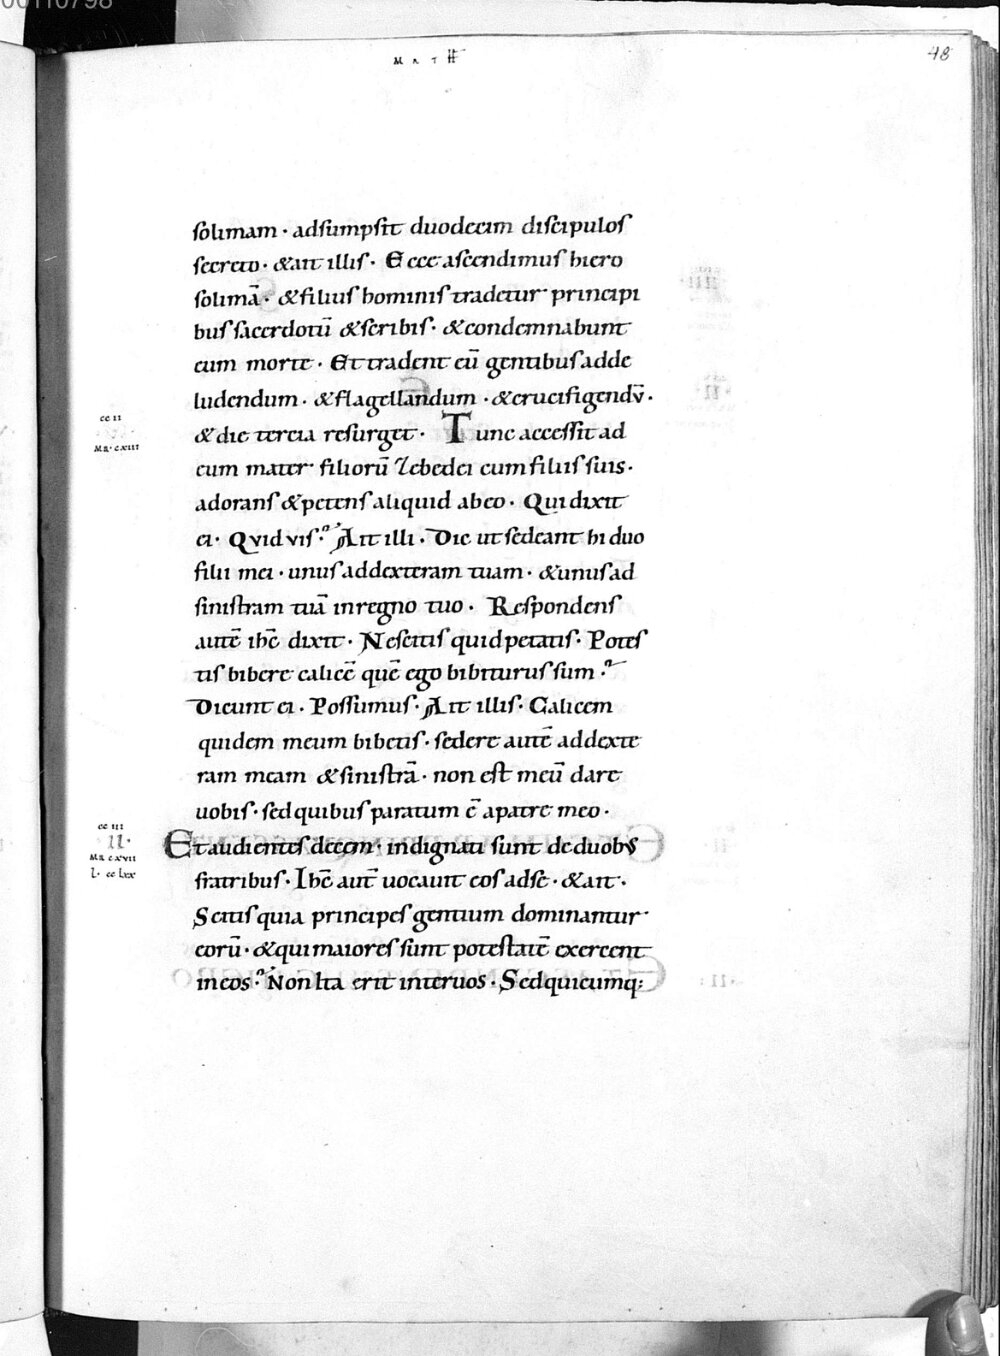 00110798
MATH
48
solimam · adsumpsit duodecim discipulos
secreto · & ait illis · Ecce ascendimus hiero
solimā · & filius hominis tradetur principi
bus sacerdotū & scribis · & condemnabunt
eum morte · Et tradent eū gentibus adde
ludendum · & flagellandum · & crucifigendv̄ ·
cc ii
& die tercia resurget · Tunc accessit ad
MR · cxiii
eum mater filiorū Zebedei cum filiis suis ·
adorans & petens aliquid ab eo · Qui dixit
ei · Qvid vis · Ait illi · Dic ut sedeant hi duo
filii mei · unus ad dexteram tuam · & unus ad
sinistram tuā in regno tuo · Respondens
autē ihē dixit · Nescitis quid petatis · Potes
tis bibere calicē quē ego bibiturus sum ·
Dicunt ei · Possumus · Ait illis · Calicem
quidem meum bibetis · sedere autē ad dexte
ram meam & sinistrā · non est meū dare
uobis · sed quibus paratum ē a patre meo ·
cc iii
II ·
Et audientes decem · indignati sunt de duobus
MR cxvii
L · cc lxx
fratribus · Ihē aut̄ uocauit eos ad se · & ait ·
Scitis quia principes gentium dominantur
eorū · & qui maiores sunt potestatē exercent
in eos · Non ita erit inter uos · Sed quicumq;